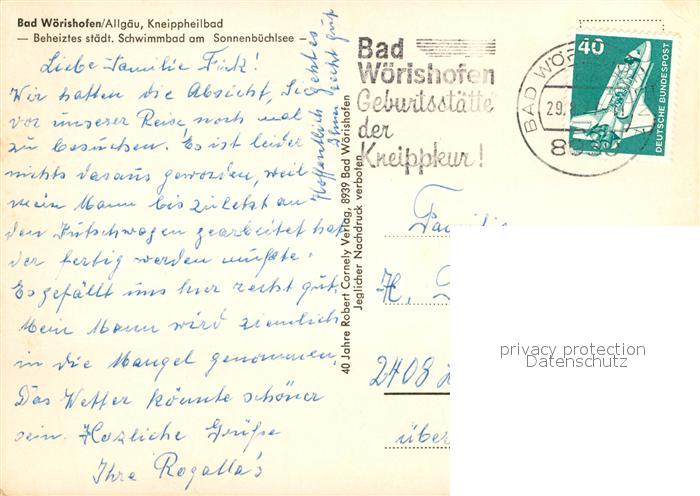 Bad Wörishofen/Allgäu, Kneippheilbad
— Beheiztes städt. Schwimmbad am Sonnenbüchlsee —
Liebe Familie Türk!
Wir hatten die Absicht, Sie
vor unserer Reise noch mal
zu besuchen. Es ist leider
nichts daraus geworden, weil
mein Mann bis zuletzt an
den Kutschwagen gearbeitet hat
der fertig werden mußte.
Es gefällt uns hier recht gut.
Mein Mann wird ziemlich
in die Mangel genommen.
Das Wetter könnte schöner
sein. Herzliche Grüße
Ihre Rogalla's
Hoffentlich geht es
Ihnen recht gut
40 Jahre Robert Cornely Verlag, 8939 Bad Wörishofen
Jeglicher Nachdruck verboten
Bad
Wörishofen
Geburtsstätte
der
Kneippkur!
BAD WÖR
29.
8939
40
DEUTSCHE BUNDESPOST
Familie
H.
2408
über
privacy protection
Datenschutz